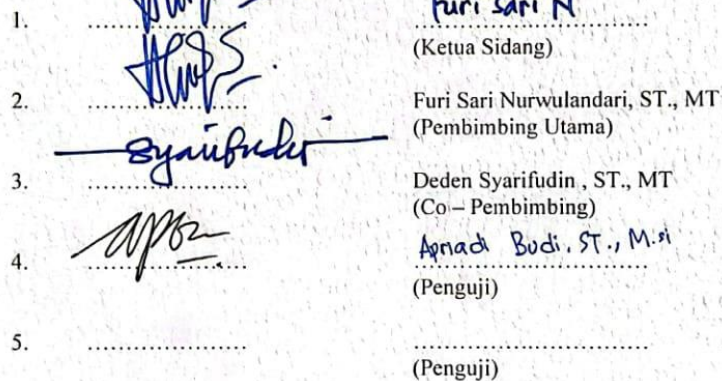 1. .................... Furi Sari N
(Ketua Sidang)
2. .................... Furi Sari Nurwulandari, ST., MT
(Pembimbing Utama)
Syarifudin
3. .................... Deden Syarifudin , ST., MT
(Co – Pembimbing)
Apriadi Budi. ST., M.si
4. .................... ..............................
(Penguji)
5. .................... ..............................
(Penguji)